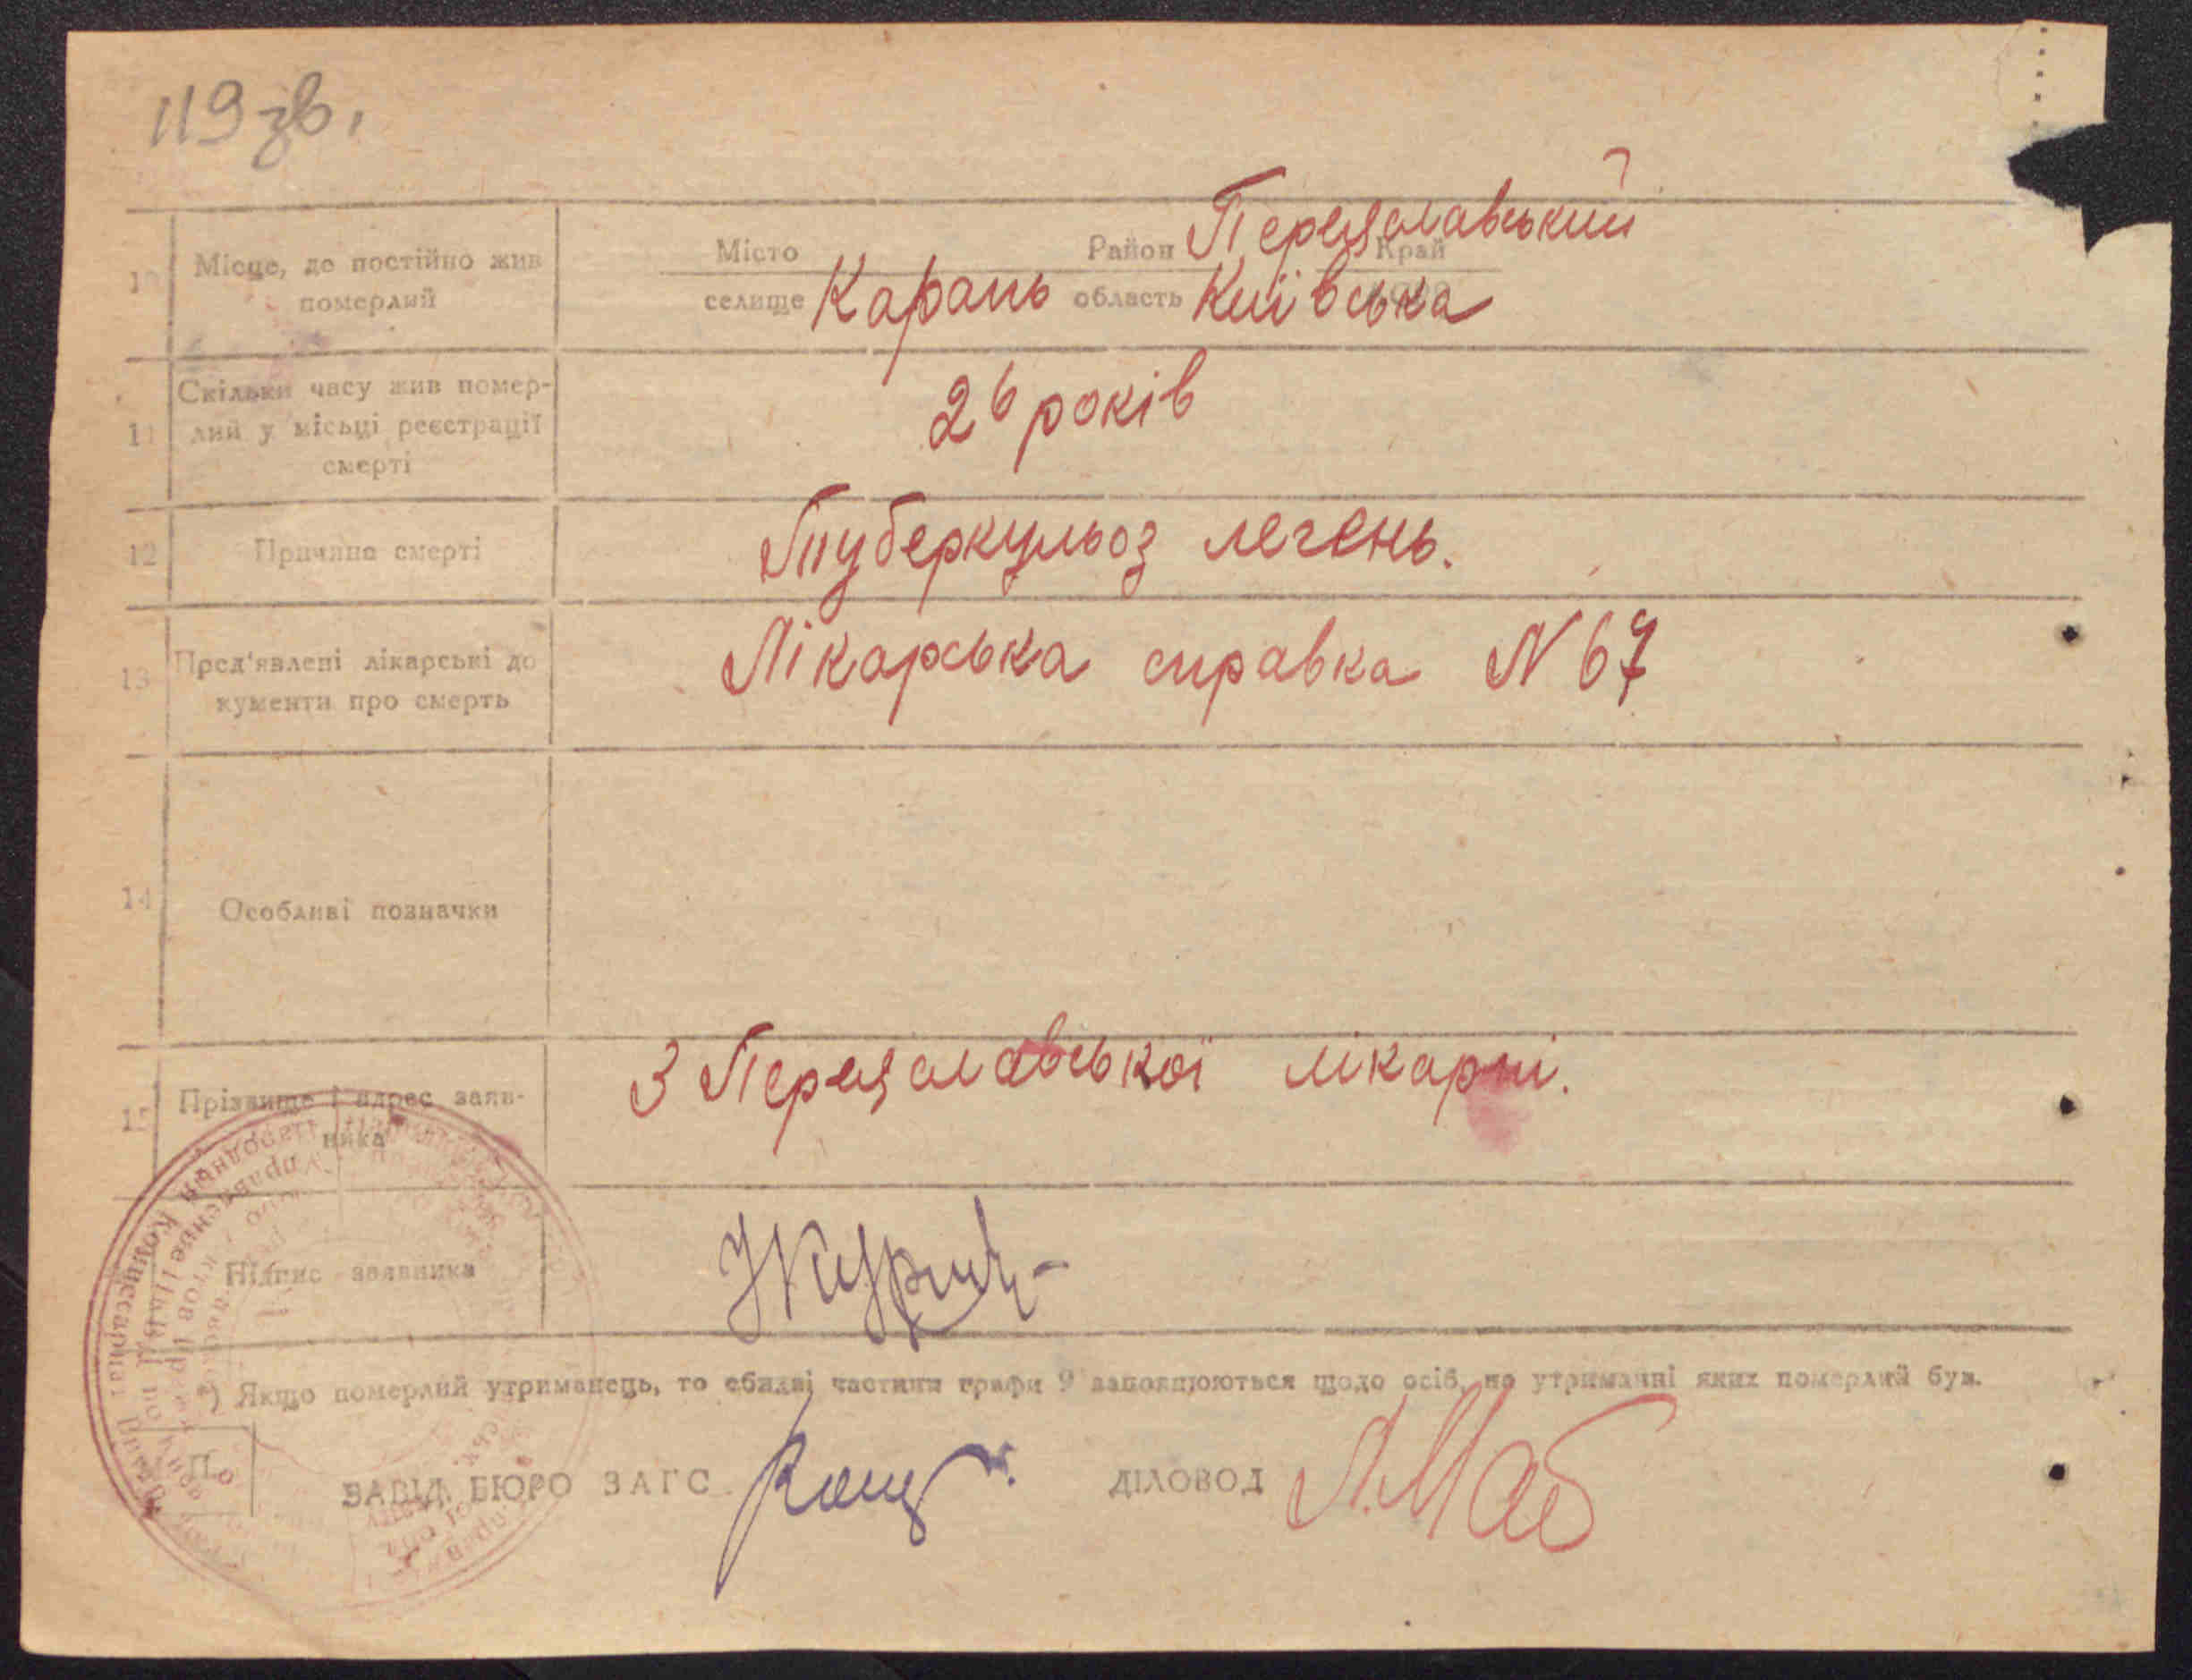 119 зв.
10 Місце, де постійно жив
померлий
Місто Район Переяславський Край
селище Карань область Київська
Скільки часу жив помер-
11 лий у місьці реєстрації
смерті
26 років
12 Причина смерті Туберкульоз легень.
13 Пред'явлені лікарські до
кументи про смерть
Лікарська справка N 67
14 Особливі позначки
15 Прізвище і адрес заяв-
ника
З Переяславської лікарні.
Підпис заявника
*) Якщо померлий утриманець, то обидві частини графи 9 заповнюються щодо осіб, на утриманні яких померлий був.
П.о
ЗАВІД. БЮРО ЗАГС ДІЛОВОД